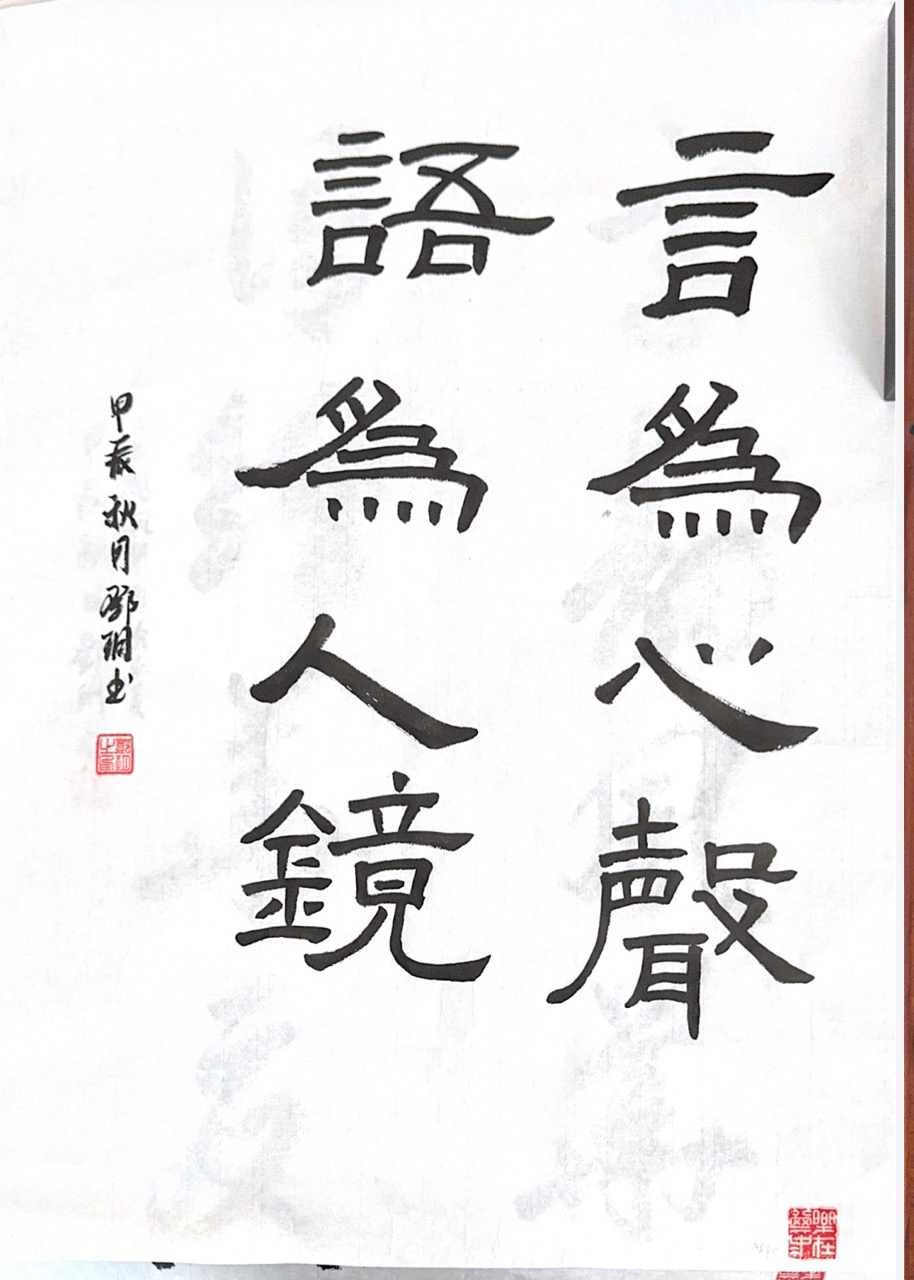 言為心聲
語為人鏡
甲辰秋月鄧玥书